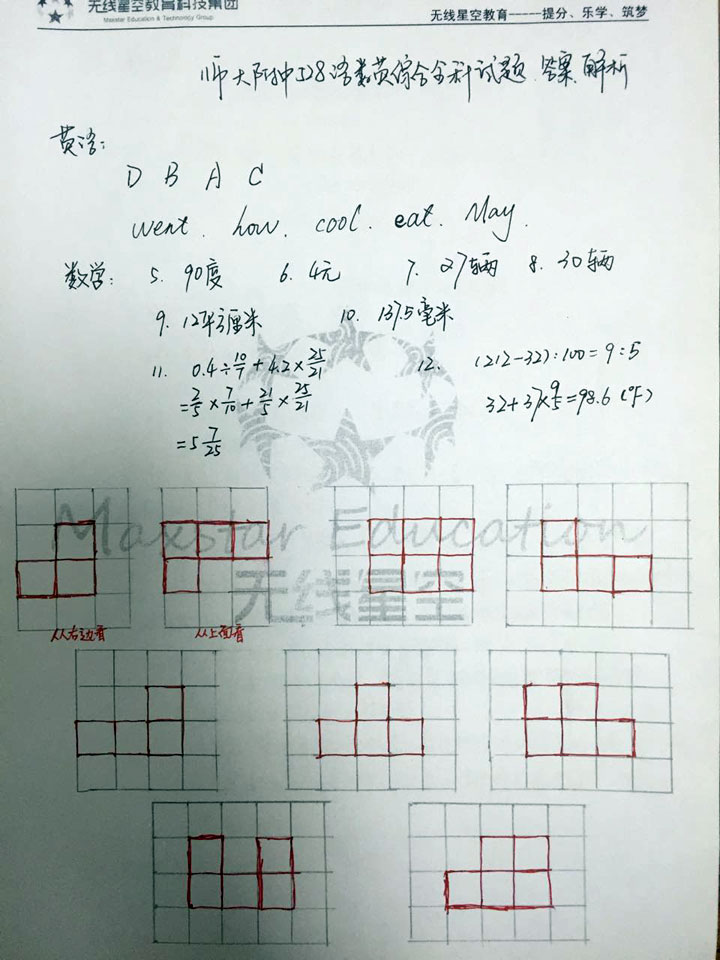 无线星空教育科技集团
Maxstar Education & Technology Group
无线星空教育-----提分、乐学、筑梦
师大附中528语数英综合全科试题 答案 解析
英语:
D B A C
went. how. cool. eat. May.
数学: 5. 90度 6. 4元 7. 27辆 8. 30辆
9. 12平方厘米 10. 137.5毫米
11. 0.4÷10/7+4.2×25/21 12. (212-32):100=9:5
=2/5×7/10+21/5×25/21 32+37×9/5=98.6(℉)
=5 7/25
Maxstar Education
无线星空
从右边看 从上面看